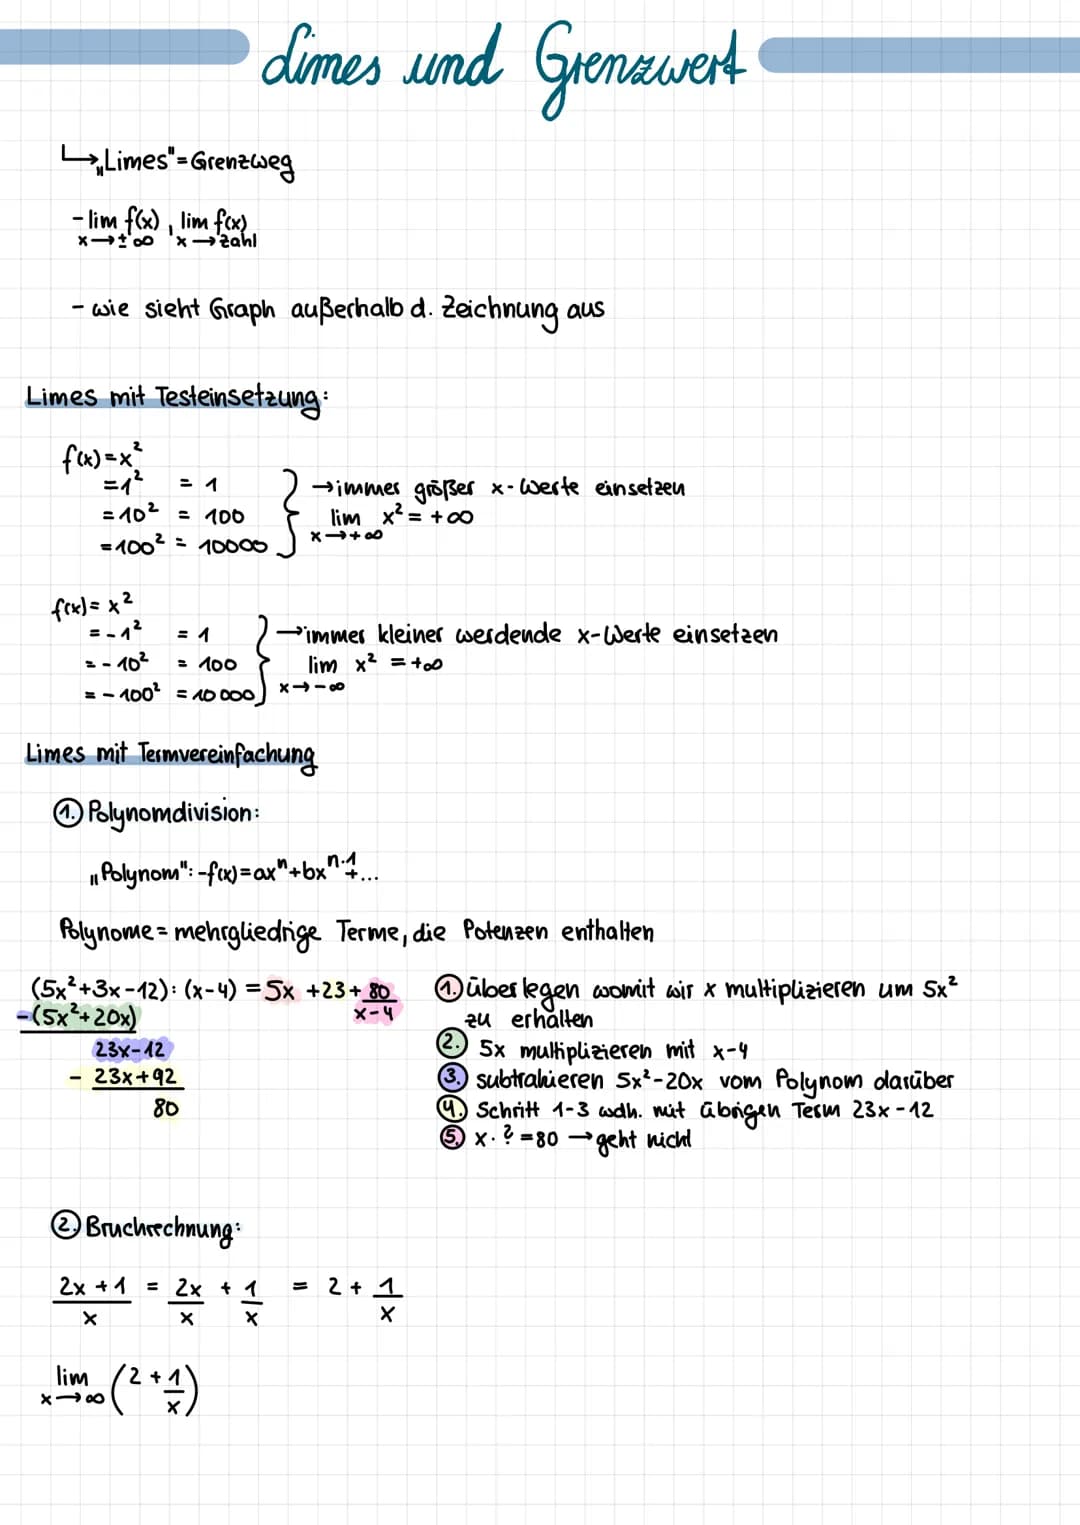 Limes und Grenzwert
↳ „Limes" = Grenzweg
- lim f(x) , lim f(x)
x→±∞ x→Zahl
- wie sieht Graph außerhalb d. Zeichnung aus
Limes mit Testeinsetzung:
f(x) = x²
= 1² = 1
= 10² = 100
= 100² = 10000
→ immer größer x-Werte einsetzen
lim x² = +∞
x→+∞
f(x) = x²
= -1² = 1
= -10² = 100
= -100² = 10 000
→ immer kleiner werdende x-Werte einsetzen
lim x² = +∞
x→-∞
Limes mit Termvereinfachung
1. Polynomdivision:
„Polynom": - f(x) = axⁿ + bxⁿ·¹ + ...
Polynome = mehrgliedrige Terme, die Potenzen enthalten
(5x² + 3x - 12) : (x - 4) = 5x + 23 + 80
x - 4
-(5x² + 20x)
23x - 12
- 23x + 92
80
1. überlegen womit wir x multiplizieren um 5x²
zu erhalten
2. 5x multiplizieren mit x-4
3. subtrahieren 5x² - 20x vom Polynom darüber
4. Schritt 1-3 wdh. mit übrigen Term 23x - 12
5. x · ? = 80 → geht nicht
2. Bruchrechnung:
2x + 1 = 2x + 1 = 2 + 1
x x x x
lim (2 + 1/x)
x→∞